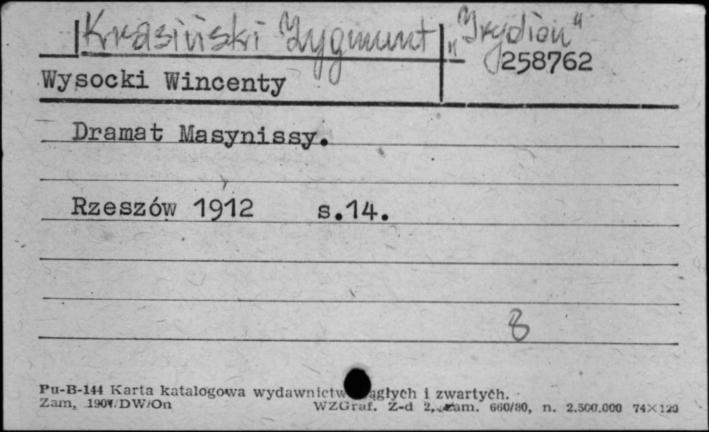 Krasiński Zygmunt „Irydion"
258762
Wysocki Wincenty
Dramat Masynissy.
Rzeszów 1912 s.14.
8
Pu-B-144 Karta katalogowa wydawnictw ągłych i zwartych.
Zam, DW/On WZGraf. Z-d 2, zam. 660/80, n. 2.500.000 74×120